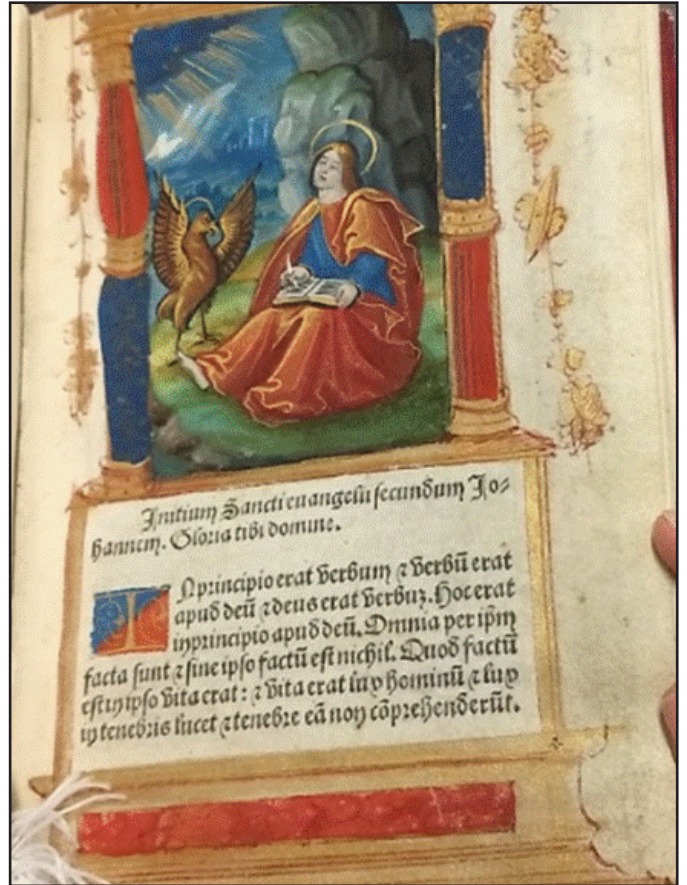 Initium Sancti euangelii secundum Jo⸗
hannem. Gloria tibi domine.
IN principio erat verbum ⁊ verbū erat
apud deū ⁊ deus erat verbuꝫ. Hoc erat
in principio apud deū. Omnia per ip̄m
facta sunt ⁊ sine ipso factū est nichil. Quod factū
est in ipso vita erat: ⁊ vita erat lux hominū ⁊ lux
in tenebris lucet ⁊ tenebre eā non cōprehenderūt.